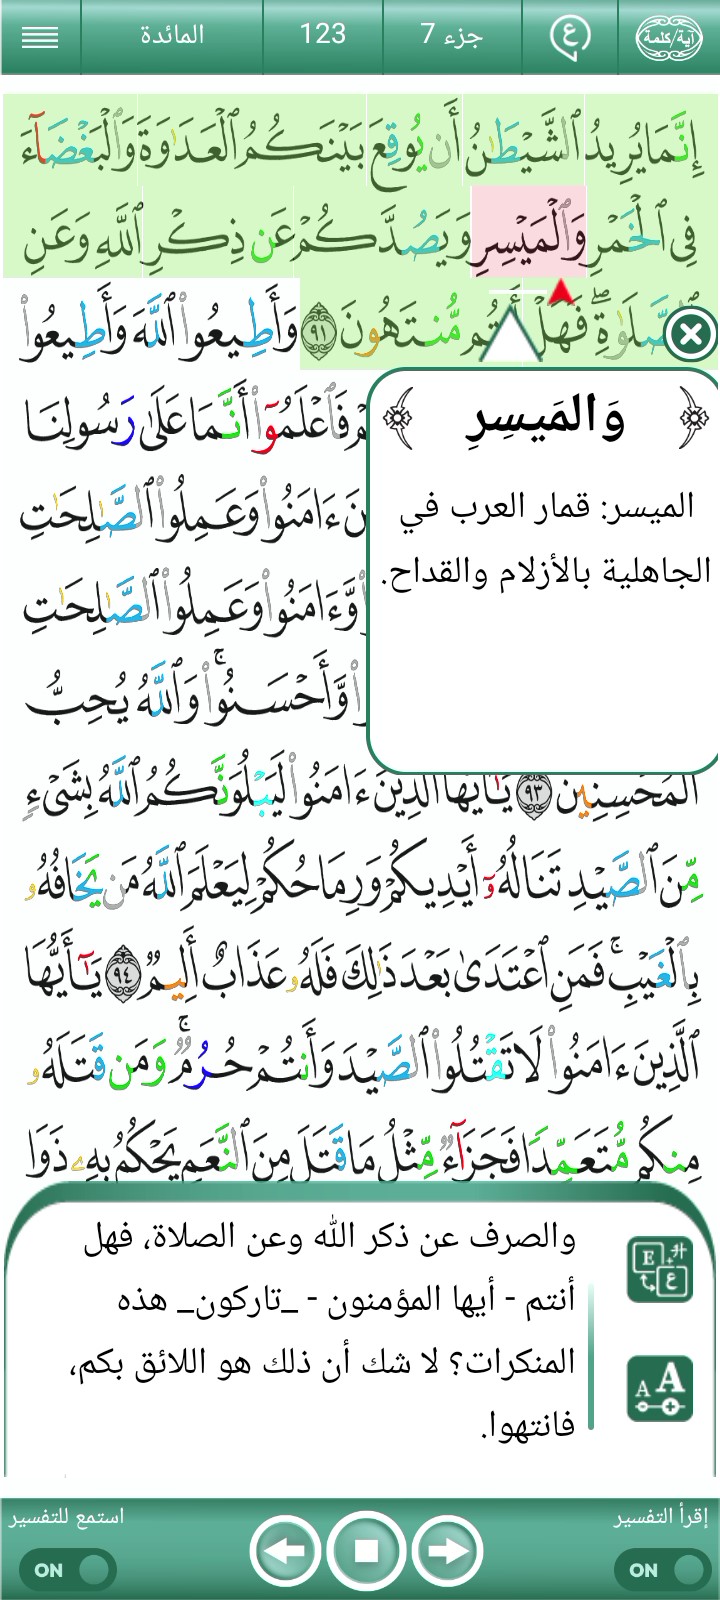 آية/كلمة
ع
جزء 7
123
المائدة
إِنَّمَا يُرِيدُ ٱلشَّيْطَـٰنُ أَن يُوقِعَ بَيْنَكُمُ ٱلْعَدَٰوَةَ وَٱلْبَغْضَآءَ
فِى ٱلْخَمْرِ وَٱلْمَيْسِرِ وَيَصُدَّكُمْ عَن ذِكْرِ ٱللَّهِ وَعَنِ
ٱلصَّلَوٰةِ ۖ فَهَلْ أَنتُم مُّنتَهُونَ ٩١ وَأَطِيعُوا۟ ٱللَّهَ وَأَطِيعُوا۟
فَٱعْلَمُوٓا۟ أَنَّمَا عَلَىٰ رَسُولِنَا
ءَامَنُوا۟ وَعَمِلُوا۟ ٱلصَّـٰلِحَـٰتِ
وَّءَامَنُوا۟ وَعَمِلُوا۟ ٱلصَّـٰلِحَـٰتِ
وَّأَحْسَنُوا۟ ۗ وَٱللَّهُ يُحِبُّ
ٱلْمُحْسِنِينَ ٩٣ يَـٰٓأَيُّهَا ٱلَّذِينَ ءَامَنُوا۟ لَيَبْلُوَنَّكُمُ ٱللَّهُ بِشَىْءٍ
مِّنَ ٱلصَّيْدِ تَنَالُهُۥٓ أَيْدِيكُمْ وَرِمَاحُكُمْ لِيَعْلَمَ ٱللَّهُ مَن يَخَافُهُۥ
بِٱلْغَيْبِ ۚ فَمَنِ ٱعْتَدَىٰ بَعْدَ ذَٰلِكَ فَلَهُۥ عَذَابٌ أَلِيمٌ ٩٤ يَـٰٓأَيُّهَا
ٱلَّذِينَ ءَامَنُوا۟ لَا تَقْتُلُوا۟ ٱلصَّيْدَ وَأَنتُمْ حُرُمٌ ۚ وَمَن قَتَلَهُۥ
مِنكُم مُّتَعَمِّدًا فَجَزَآءٌ مِّثْلُ مَا قَتَلَ مِنَ ٱلنَّعَمِ يَحْكُمُ بِهِۦ ذَوَا
وَالمَيسِرِ
الميسر: قمار العرب في
الجاهلية بالأزلام والقداح.
والصرف عن ذكر الله وعن الصلاة، فهل
أنتم - أيها المؤمنون - _تاركون_ هذه
المنكرات؟ لا شك أن ذلك هو اللائق بكم،
فانتهوا.
إقرأ التفسير
ON
استمع للتفسير
ON